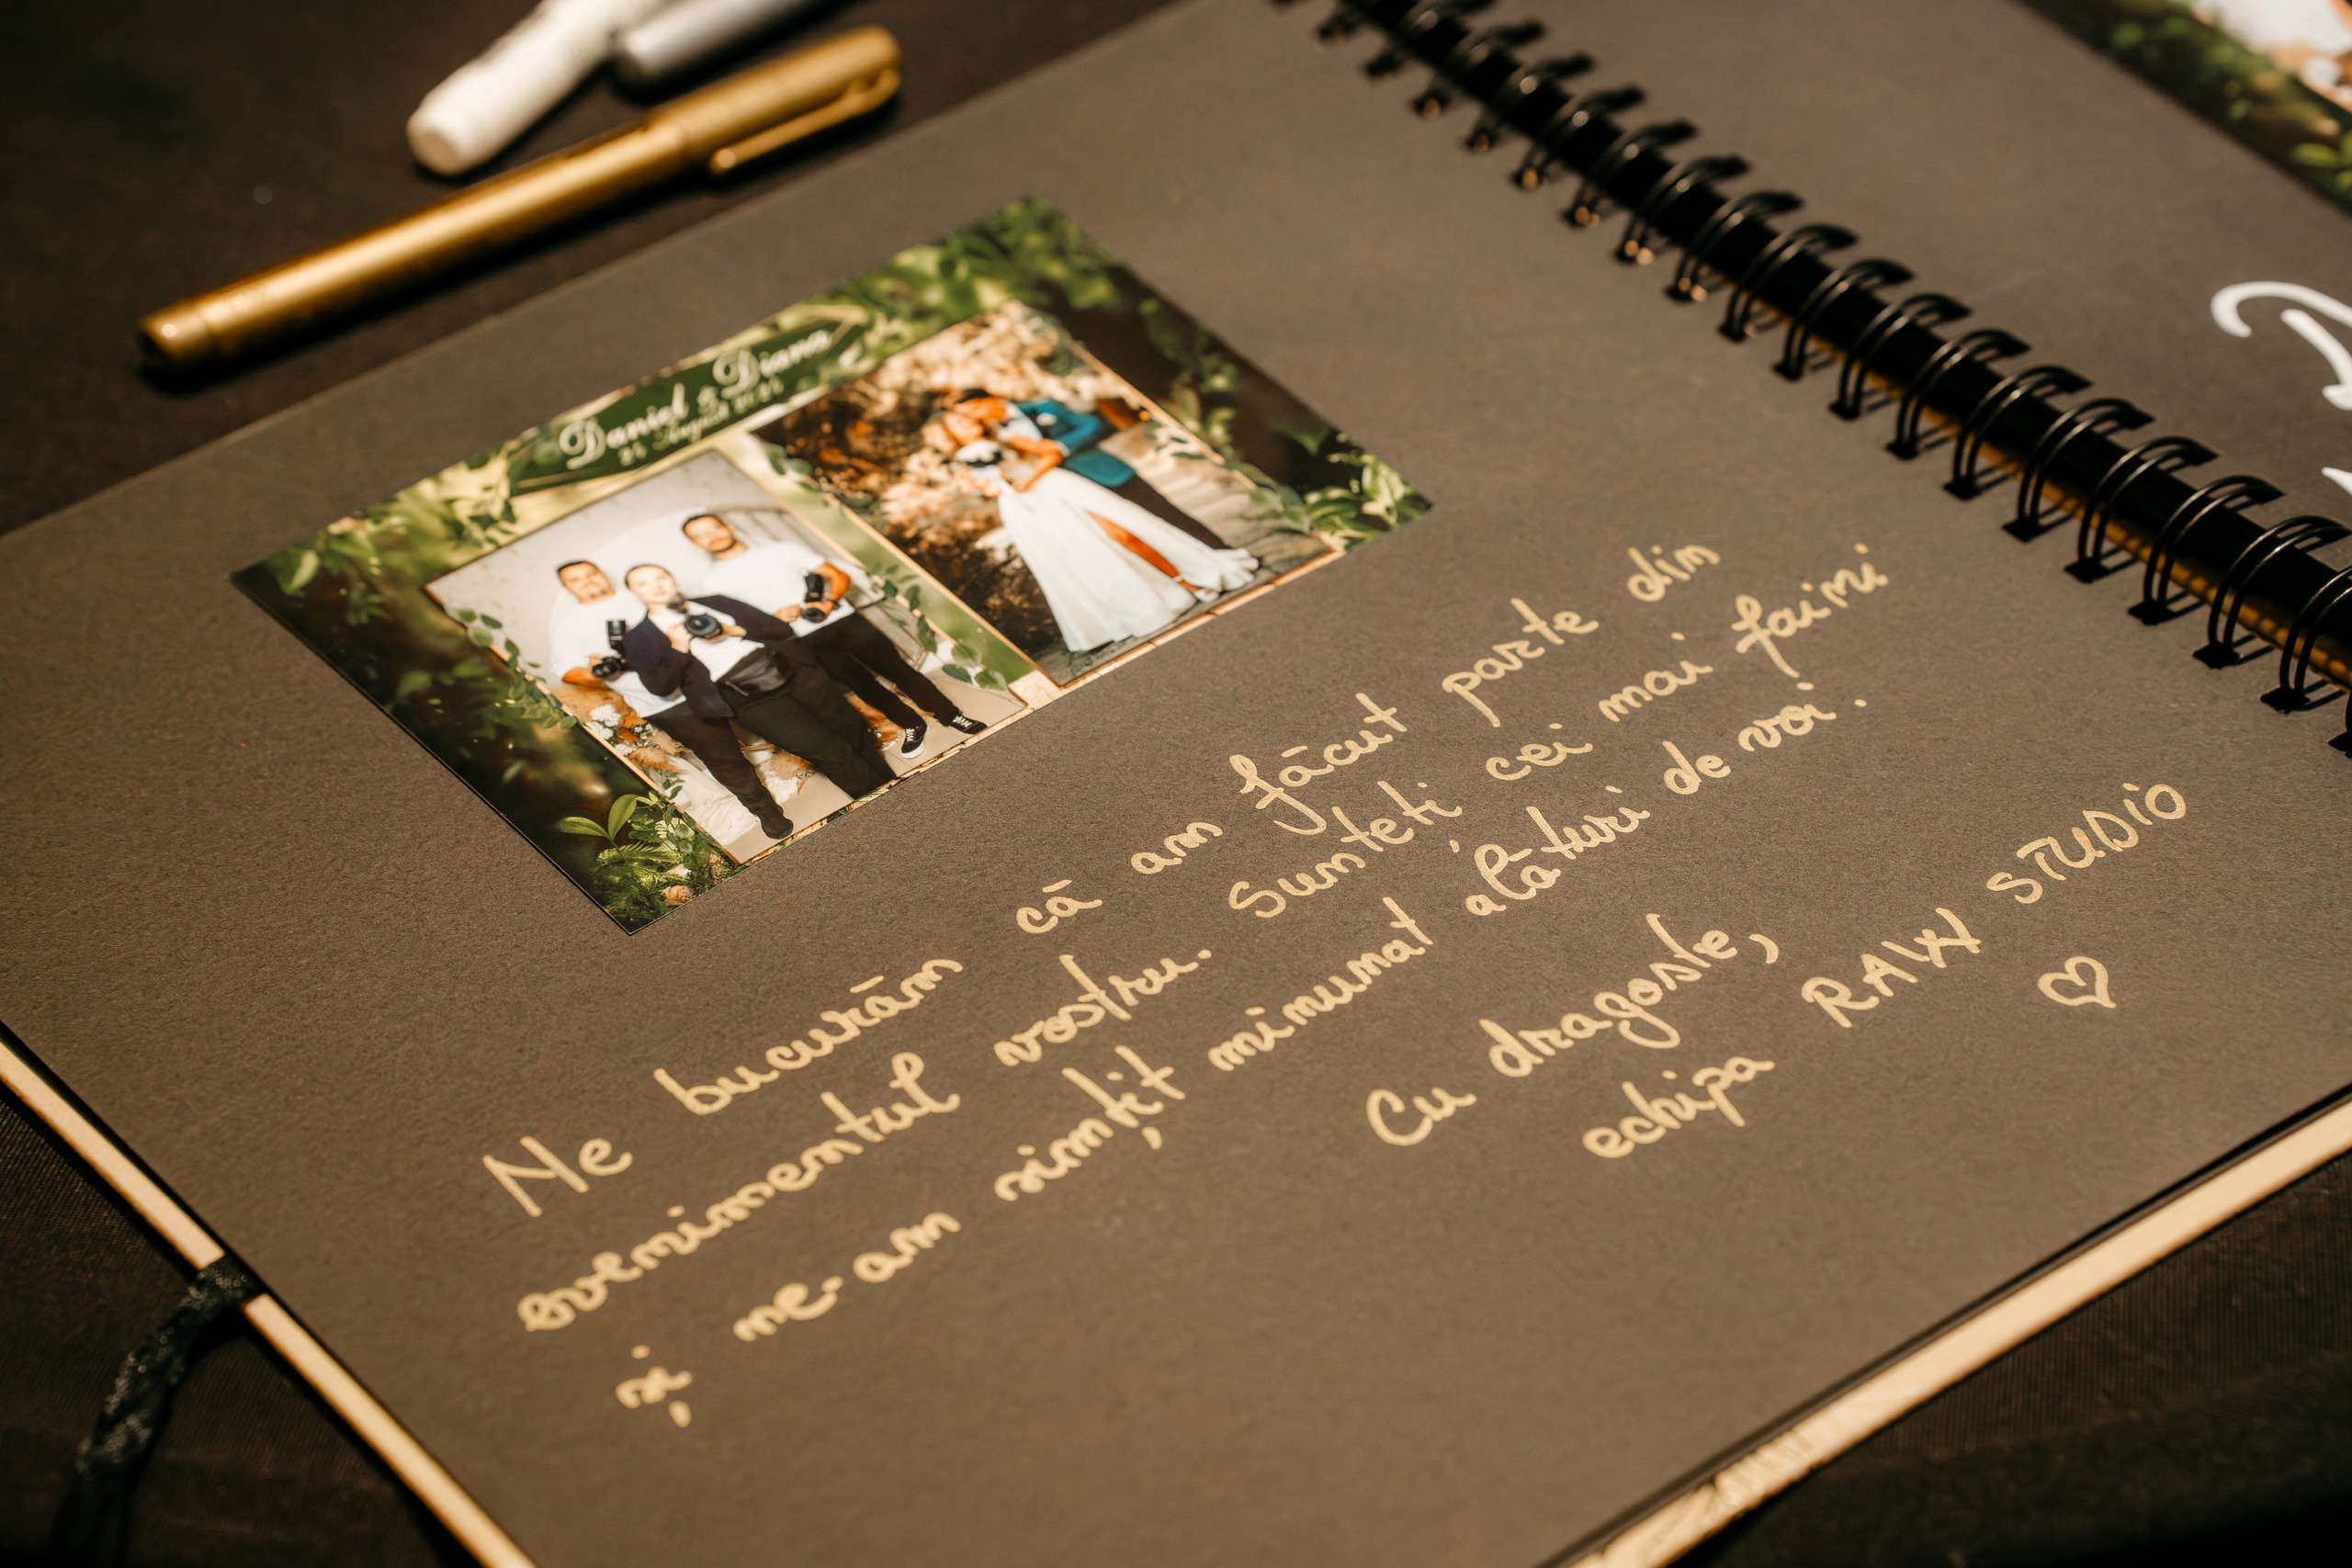 Daniel & Diana
Ne bucurăm că am făcut parte din
evenimentul vostru. Sunteți cei mai faini
și ne-am simțit minunat alături de voi.
Cu dragoste,
echipa RAW STUDIO